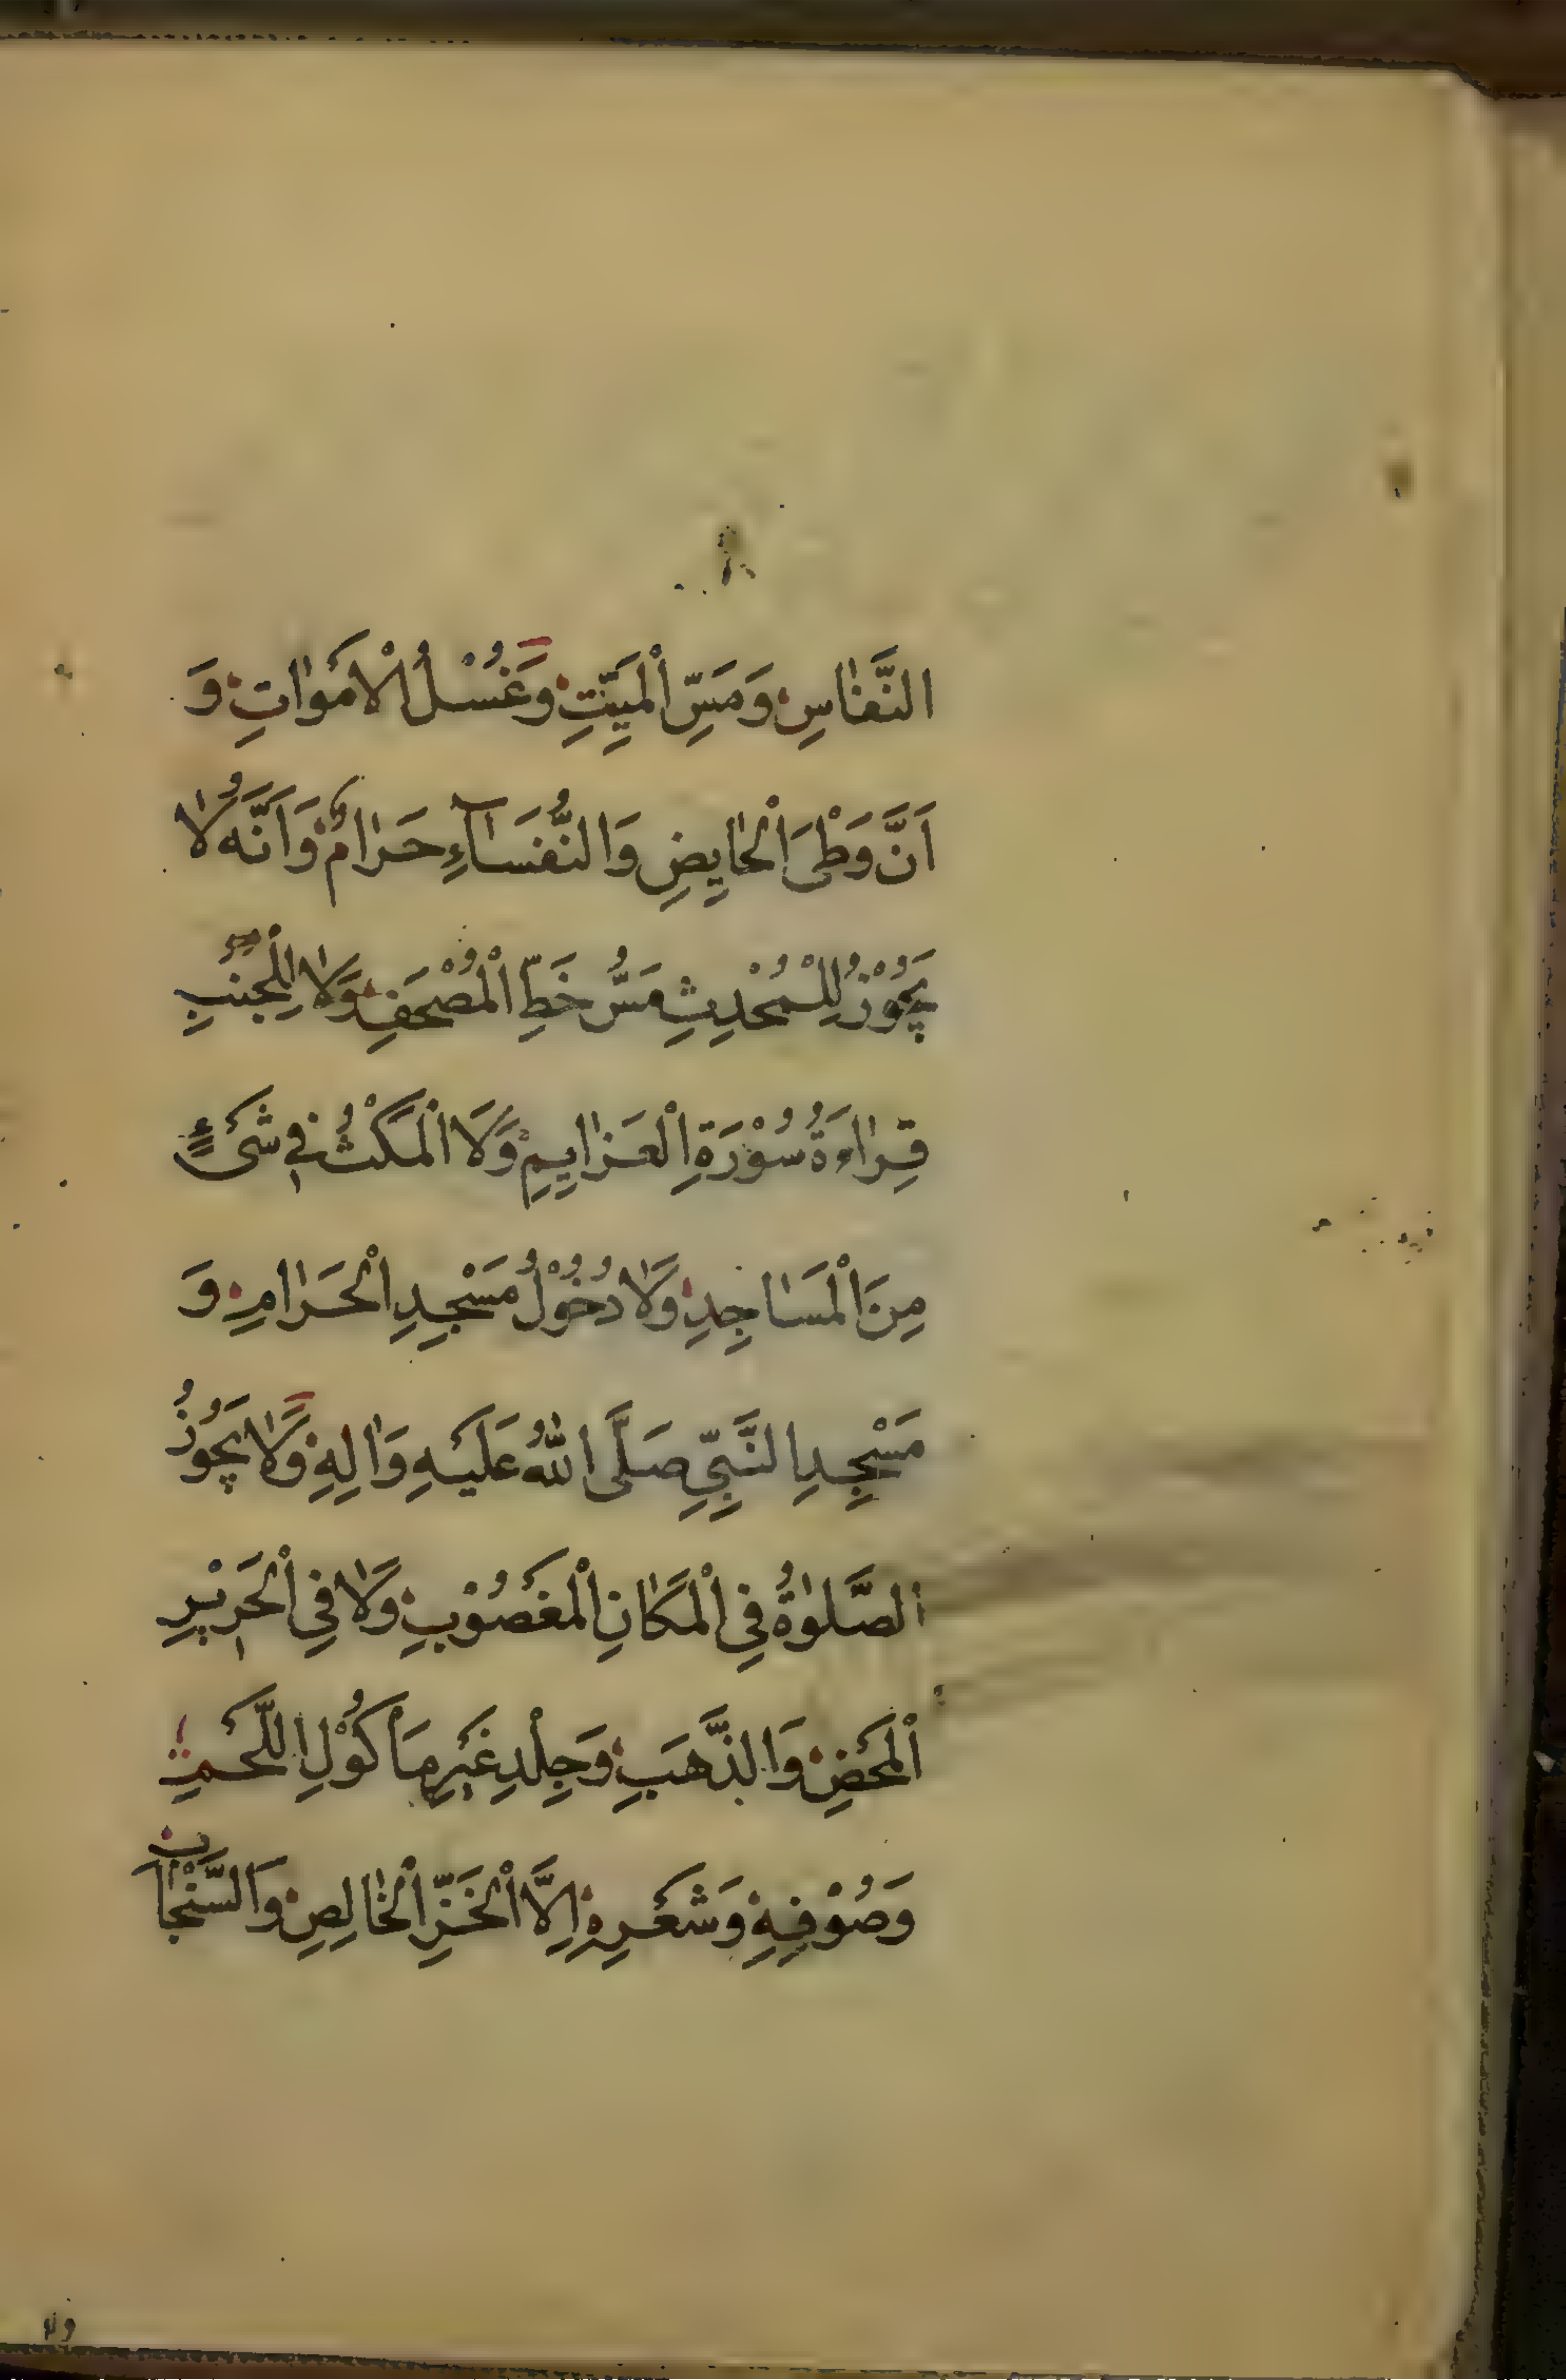 النَّفٰاسِ وَمَسِّ الْمَيِّتِ وَغُسْلُ الْاَمَوٰاتِ وَ
اَنَّ وَطْیَ الْحٰايِضِ وَالنُّفَسَآءِ حَرٰامٌ وَاَنَّهُ لٰا
يَجُوْزُ لِلْمُحْدِثِ مَسُّ خَطِّ الْمُصْحَفِ وَلٰا لِلْجُنُبِ
قِرٰاءَةُ سُوْرَةِ الْعَزٰايِمِ وَلَا الْمَكْثُ فِي شَیْءٍ
مِنَ الْمَسٰاجِدِ وَلٰا دُخُوْلُ مَسْجِدِ الْحَرٰامِ وَ
مَسْجِدِ النَّبِيِّ صَلَّى اللّٰهُ عَلَيْهِ وَاٰلِهِ وَلٰا يَجُوْزُ
الصَّلوٰةُ فِي الْمَكٰانِ الْمَغْصُوْبِ وَلٰا فِي الْحَرِيْرِ
الْمَحْضِ وَالذَّهَبِ وَجِلْدِ غَيْرِ مَأكُوْلِ اللَّحْمِ
وَصُوْفِهِ وَشَعْرِهِ اِلَّا الْخَزِّ الْخٰالِصِ وَالسَّنْجٰابِ